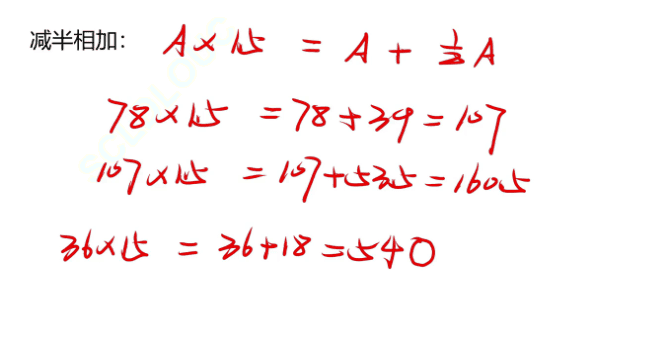 减半相加： A × 1.5 = A + ½ A
78 × 1.5 = 78 + 39 = 107
107 × 1.5 = 107 + 53.5 = 160.5
36 × 15 = 36 + 18 = 540